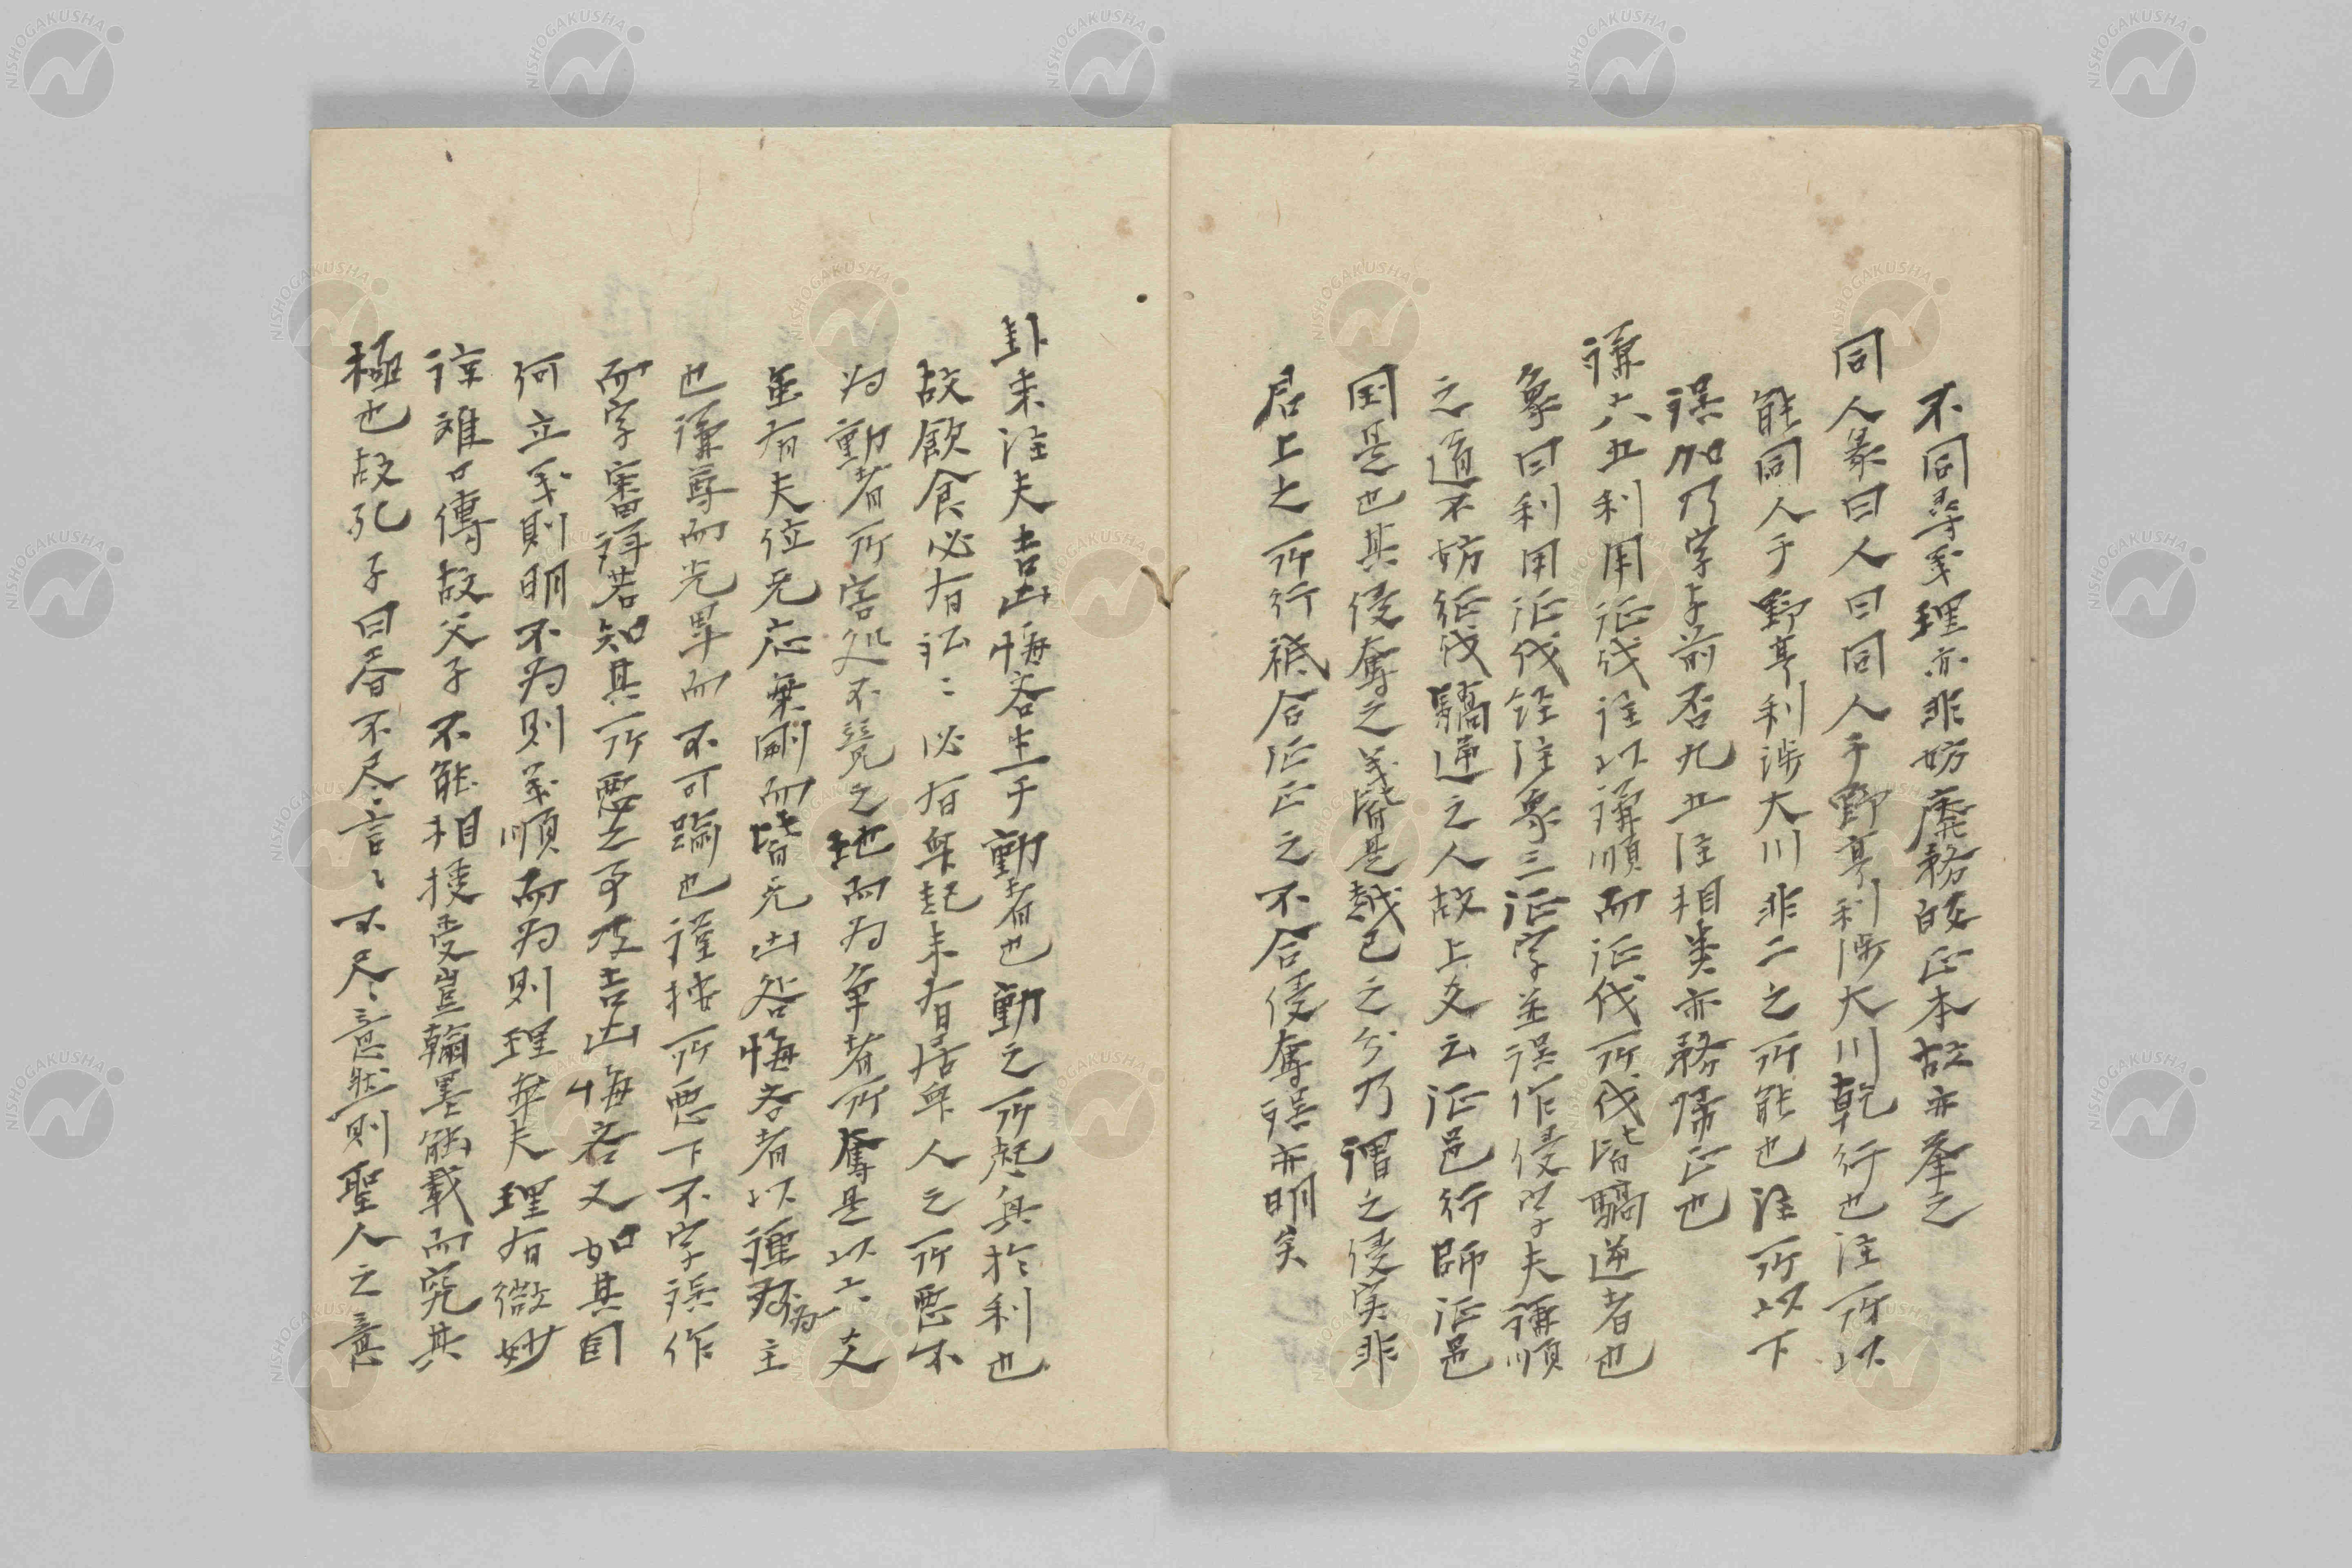 不同尋義理亦非妨廃務故正本故亦挙之
同人彖曰人曰同人于野亨利渉大川乾行也注所以
能同人于野亨利渉大川非二之所能也注所以下
誤加乃字与前否九五注相类亦務帰正也
謙六五利用征伐注以謙順而征伐所伐皆驕逆者也
象曰利用征伐経注象三征字並誤作侵字夫謙順
之道不妨征伐驕逆之人故上爻云征邑行師征邑
国是也其侵奪之義皆是越己之分乃謂之侵実非
居上之所行祇合征正之不合侵奪誤亦明矣
卦末注夫吉凶悔吝生乎動者也動之所起興於利也
故飲食必有訟〻必有衆起未有居衆人之所悪不
为動者所害処不競之地而为争者所奪是以六爻
虽有失位无応乗剛而皆无凶咎悔吝者以謙为主
也謙尊而光卑而不可踰也謹按所悪下不字誤作
而字審詳若知其所悪之事故吉凶悔吝又如其自
何立義則明不为則義順而为則理乖夫理有微妙
諒难口傳故父子不能相授受豈翰墨能載而究其
極也故孔子曰书不尽言〻不尽意然則聖人之意
NISHOGAKUSHA